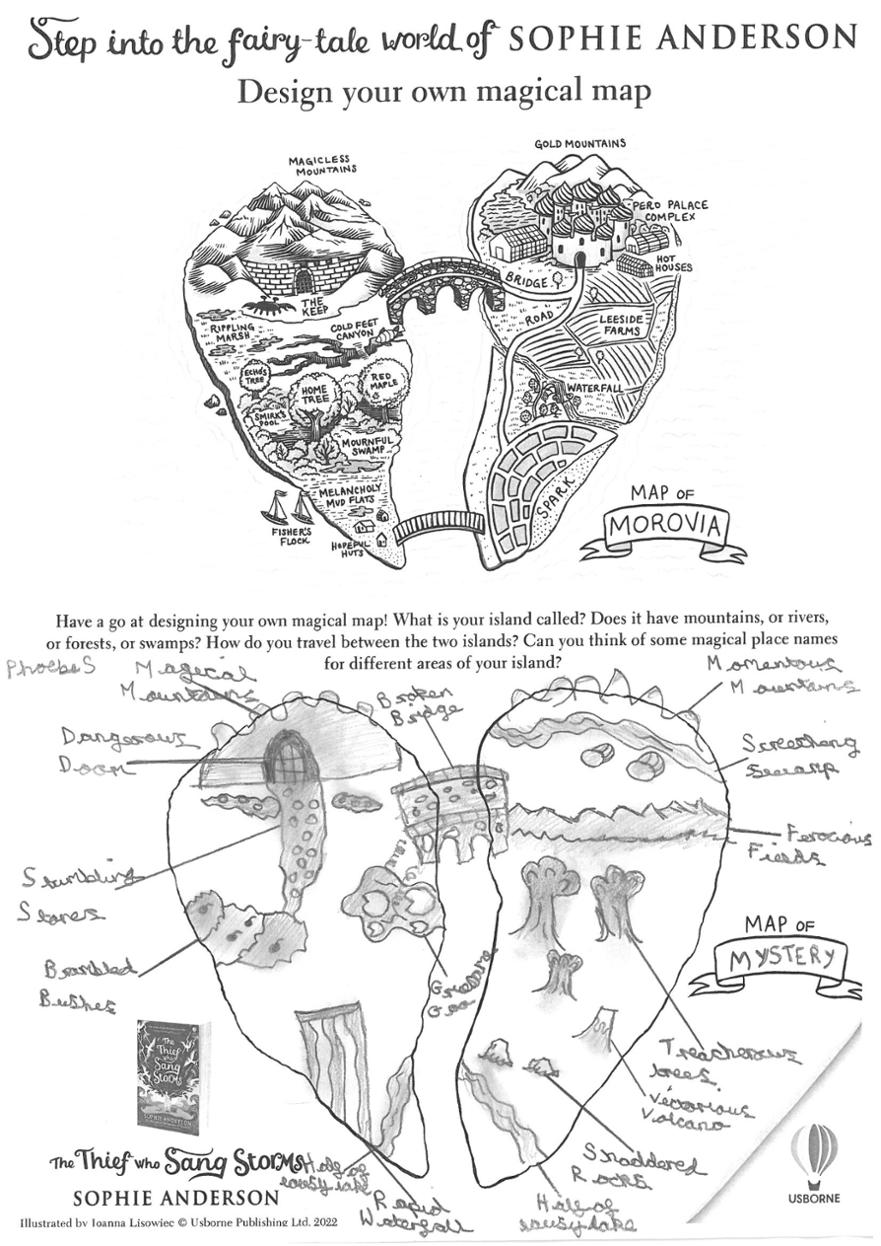 Step into the fairy-tale world of SOPHIE ANDERSON
Design your own magical map
MAGICLESS
MOUNTAINS
GOLD MOUNTAINS
PERO PALACE
COMPLEX
HOT
HOUSES
BRIDGE
THE
KEEP
ROAD
LEESIDE
FARMS
RIPPLING
MARSH
COLD FEET
CANYON
ECHO'S
TREE
HOME
TREE
RED
MAPLE
WATERFALL
SMIRK'S
POOL
MOURNFUL
SWAMP
MELANCHOLY
MUD FLATS
SPARK
FISHER'S
FLOCK
HOPEFUL
HUTS
MAP OF
MOROVIA
Have a go at designing your own magical map! What is your island called? Does it have mountains, or rivers,
or forests, or swamps? How do you travel between the two islands? Can you think of some magical place names
for different areas of your island?
Phoebe S
Magical
Mountains
Broken
Bridge
Momentous
Mountains
Dangerous
Door
Swamp
Ferocious
Fields
Stumbling
Stones
MAP OF
MYSTERY
Brambled
Bushes
Goo
Treacherous
trees
Victorious
Volcano
The
Thief
who
Sang
Storms
SOPHIE ANDERSON
The Thief who Sang Storms
SOPHIE ANDERSON
Half of
lousy lake
Rapid
Waterfall
Half of
lousy lake
Rocks
USBORNE
Illustrated by Joanna Lisowiec © Usborne Publishing Ltd. 2022